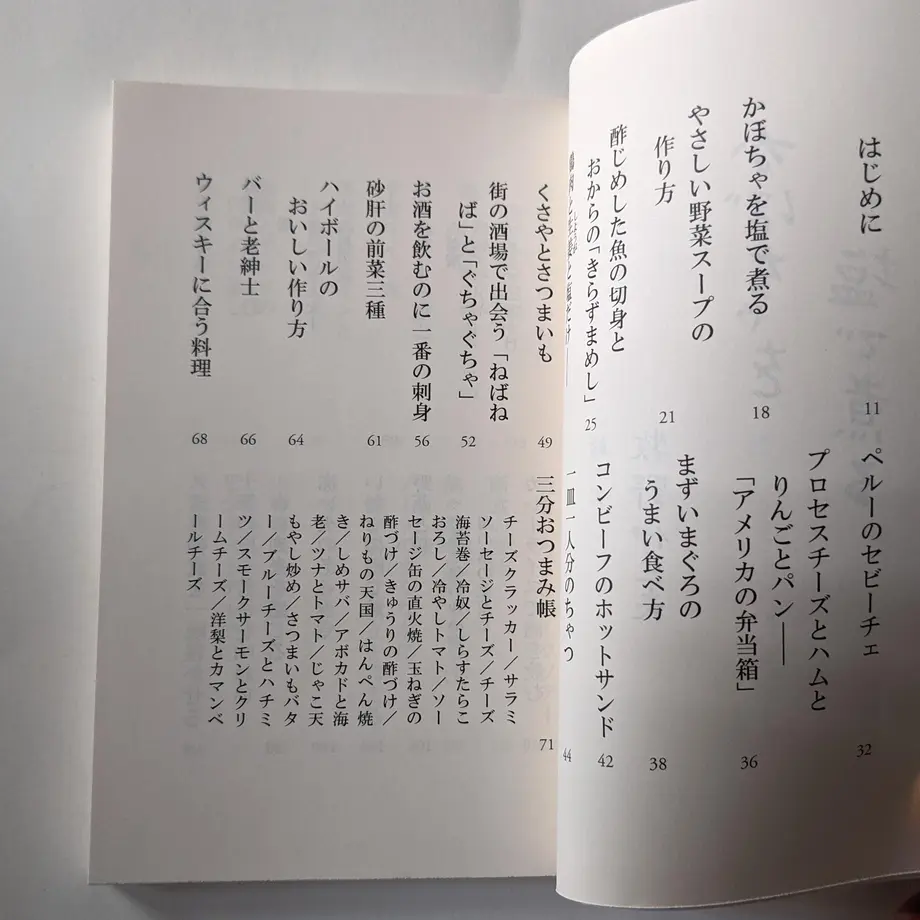 はじめに
11
かぼちゃを塩で煮る
18
やさしい野菜スープの
作り方
21
酢じめした魚の切身と
おからの「きらずまめし」
25
ペルーのセビーチェ
32
プロセスチーズとハムと
りんごとパン──
「アメリカの弁当箱」
36
まずいまぐろの
うまい食べ方
38
コンビーフのホットサンド
42
一皿一人分のちゃつ
44
くさやとさつまいも
49
街の酒場で出会う「ねばね
ば」と「ぐちゃぐちゃ」
52
お酒を飲むのに一番の刺身
56
砂肝の前菜三種
61
ハイボールの
おいしい作り方
64
バーと老紳士
66
ウィスキーに合う料理
68
三分おつまみ帳
71
チーズクラッカー/サラミ
ソーセージとチーズ/チーズ
海苔巻/冷奴/しらすたらこ
おろし/冷やしトマト/ソー
セージ缶の直火焼/玉ねぎの
酢づけ/きゅうりの酢づけ/
ねりもの天国/はんぺん焼
き/しめサバ/アボカドと海
老/ツナとトマト/じゃこ天
もやし炒め/さつまいもバタ
ー/ブルーチーズとハチミ
ツ/スモークサーモンとクリ
ームチーズ/洋梨とカマンベ
ールチーズ